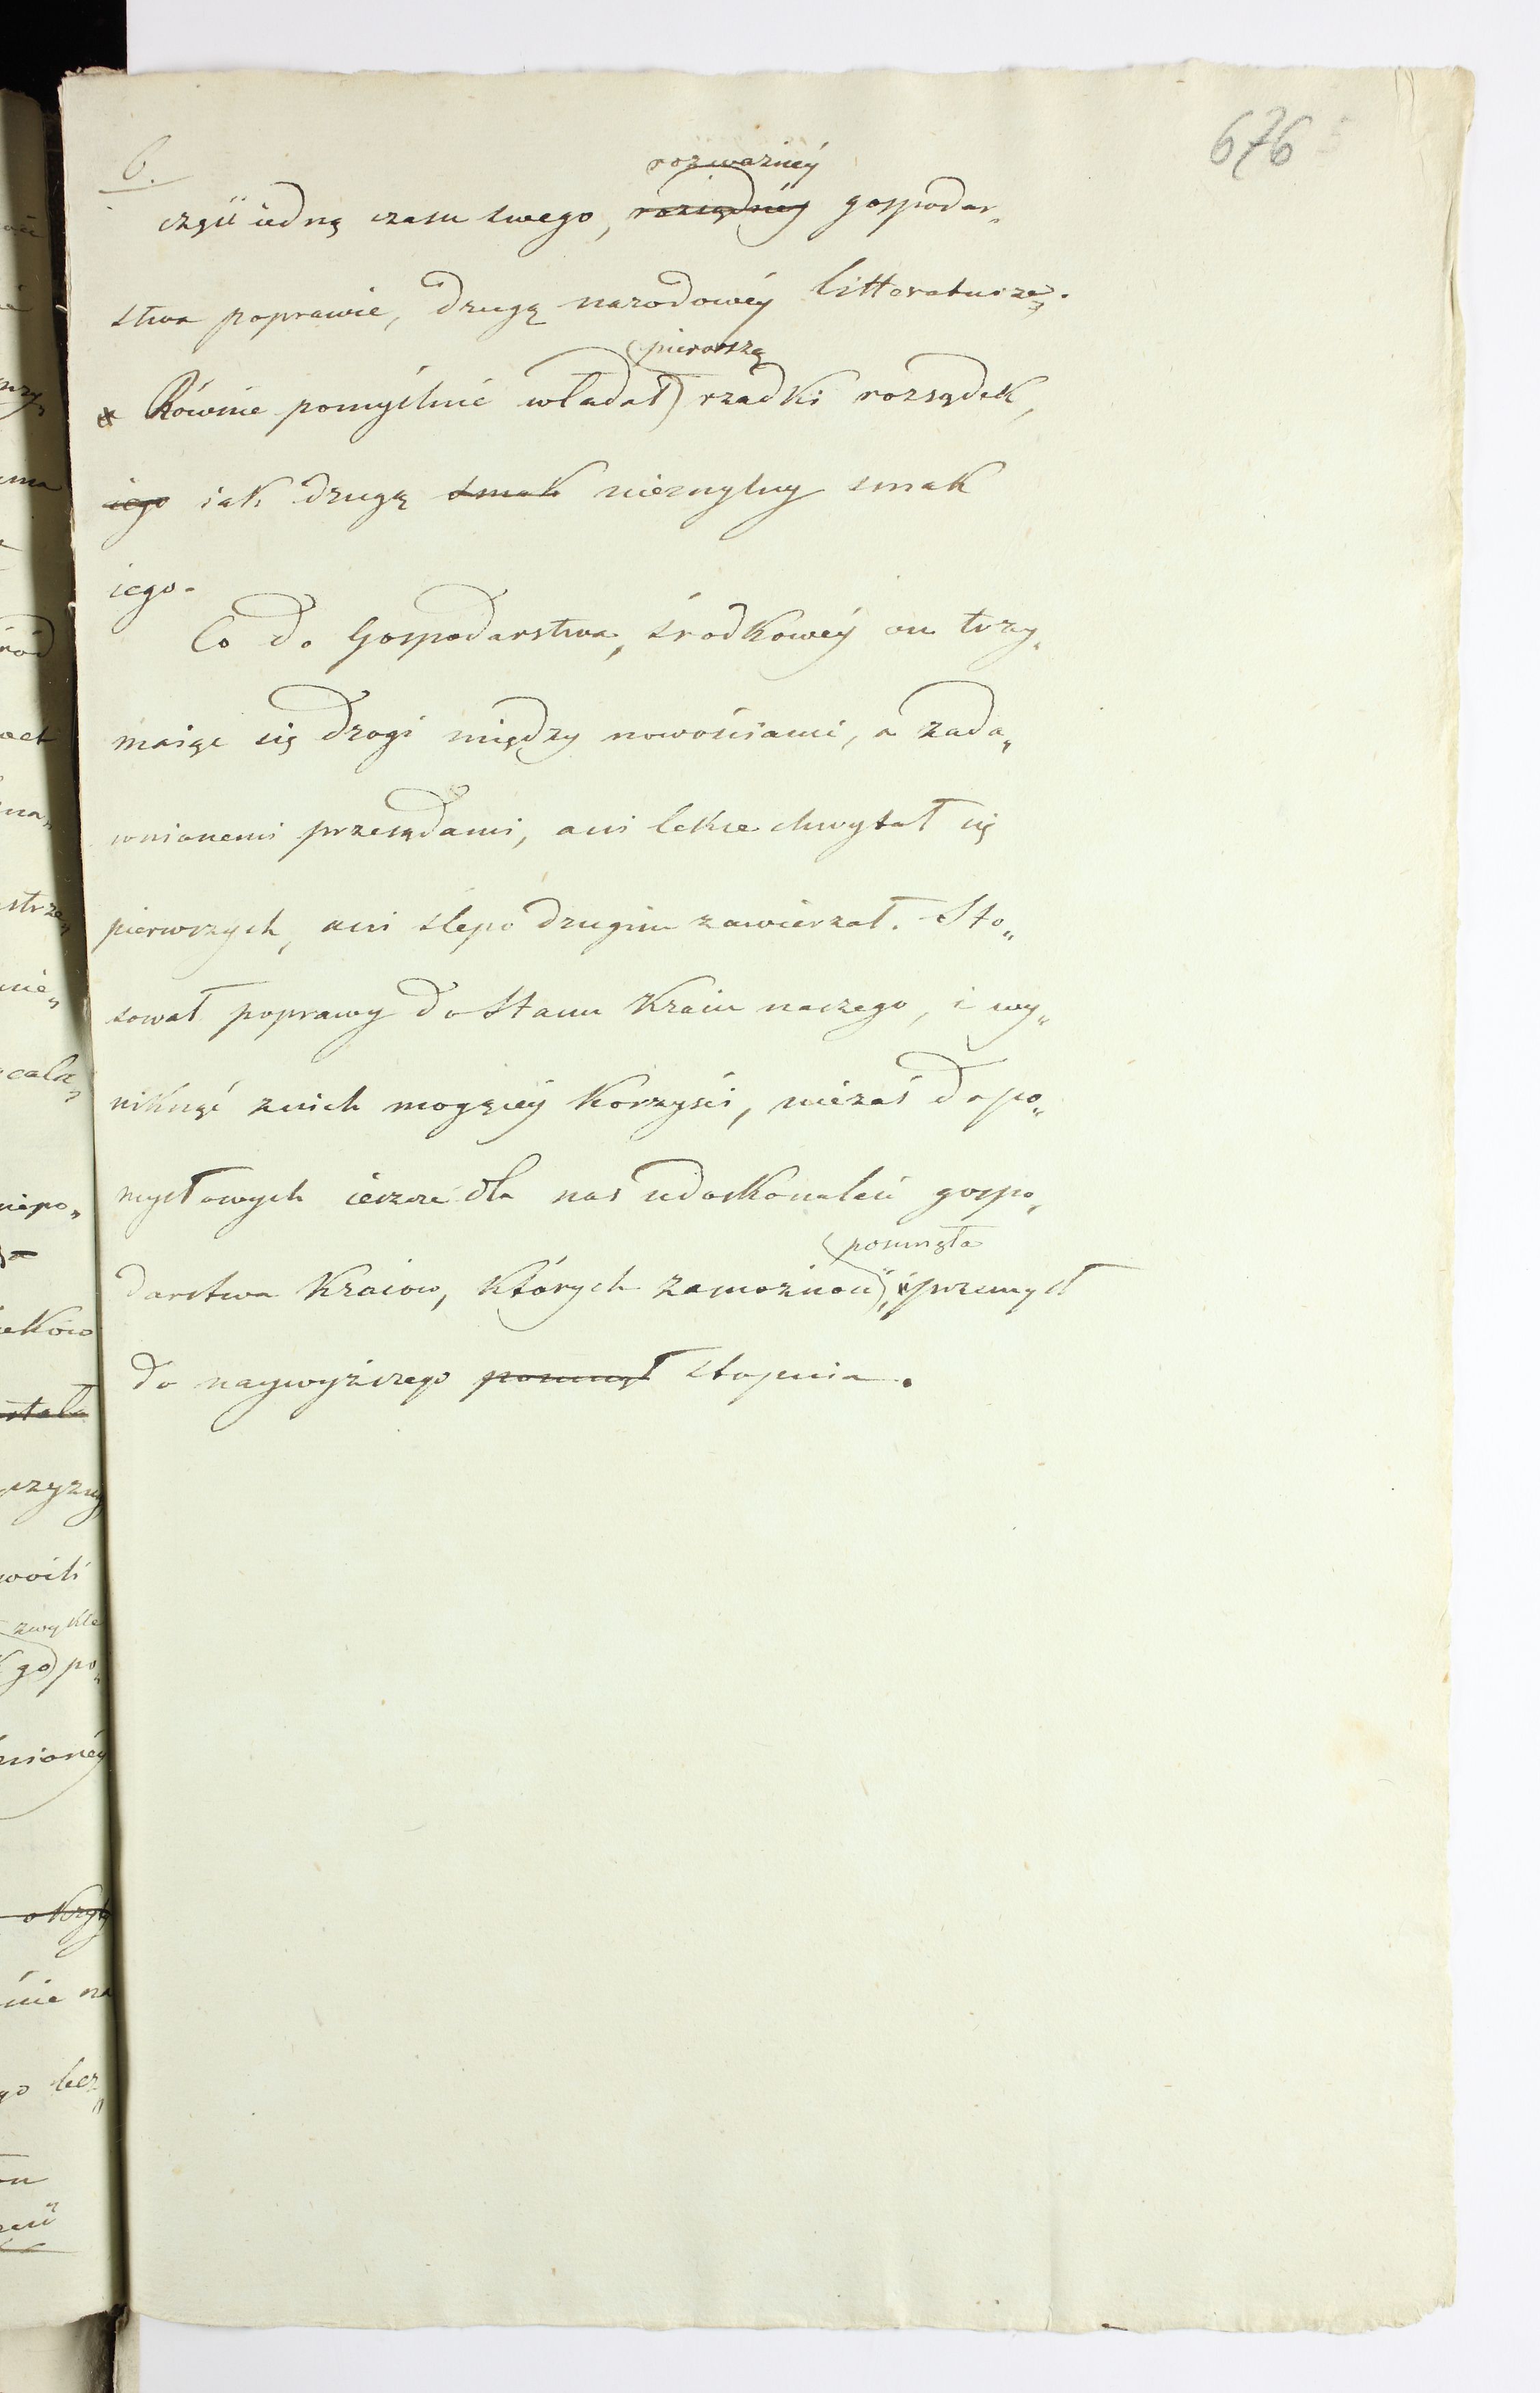 676
6.
rozważnéy
część iedną czasu swego, rozsądnéy gospodar„
stwa poprawie, drugą narodowéy litteraturze.
pierwszą
* Równie pomyślnie władał rzadki rozsądek,
iego iak drugą smak nieomylny smak
iego.
Co do Gospodarstwa, środkowéy on trzy„
maiąc się drogi między nowościami, a zada„
wnionemi przesądami, ani lekce chwytał się
pierwszych, ani ślepo drugim zawierzał. Sto„
sował poprawy do Stanu Kraiu naszego, i wy„
niknąć znich mogącéy korzyści, niezaś do po„
mysłowych ieszcze dla nas udoskonaleń gospo„
posunęła
darstwa Kraiow, których zamożność, i przemysł
do naywyższego posunął stopnia.